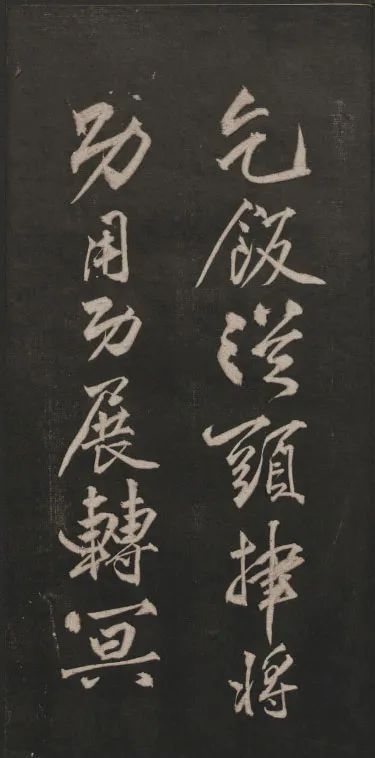 乞飯從頭將
功用功展轉冥